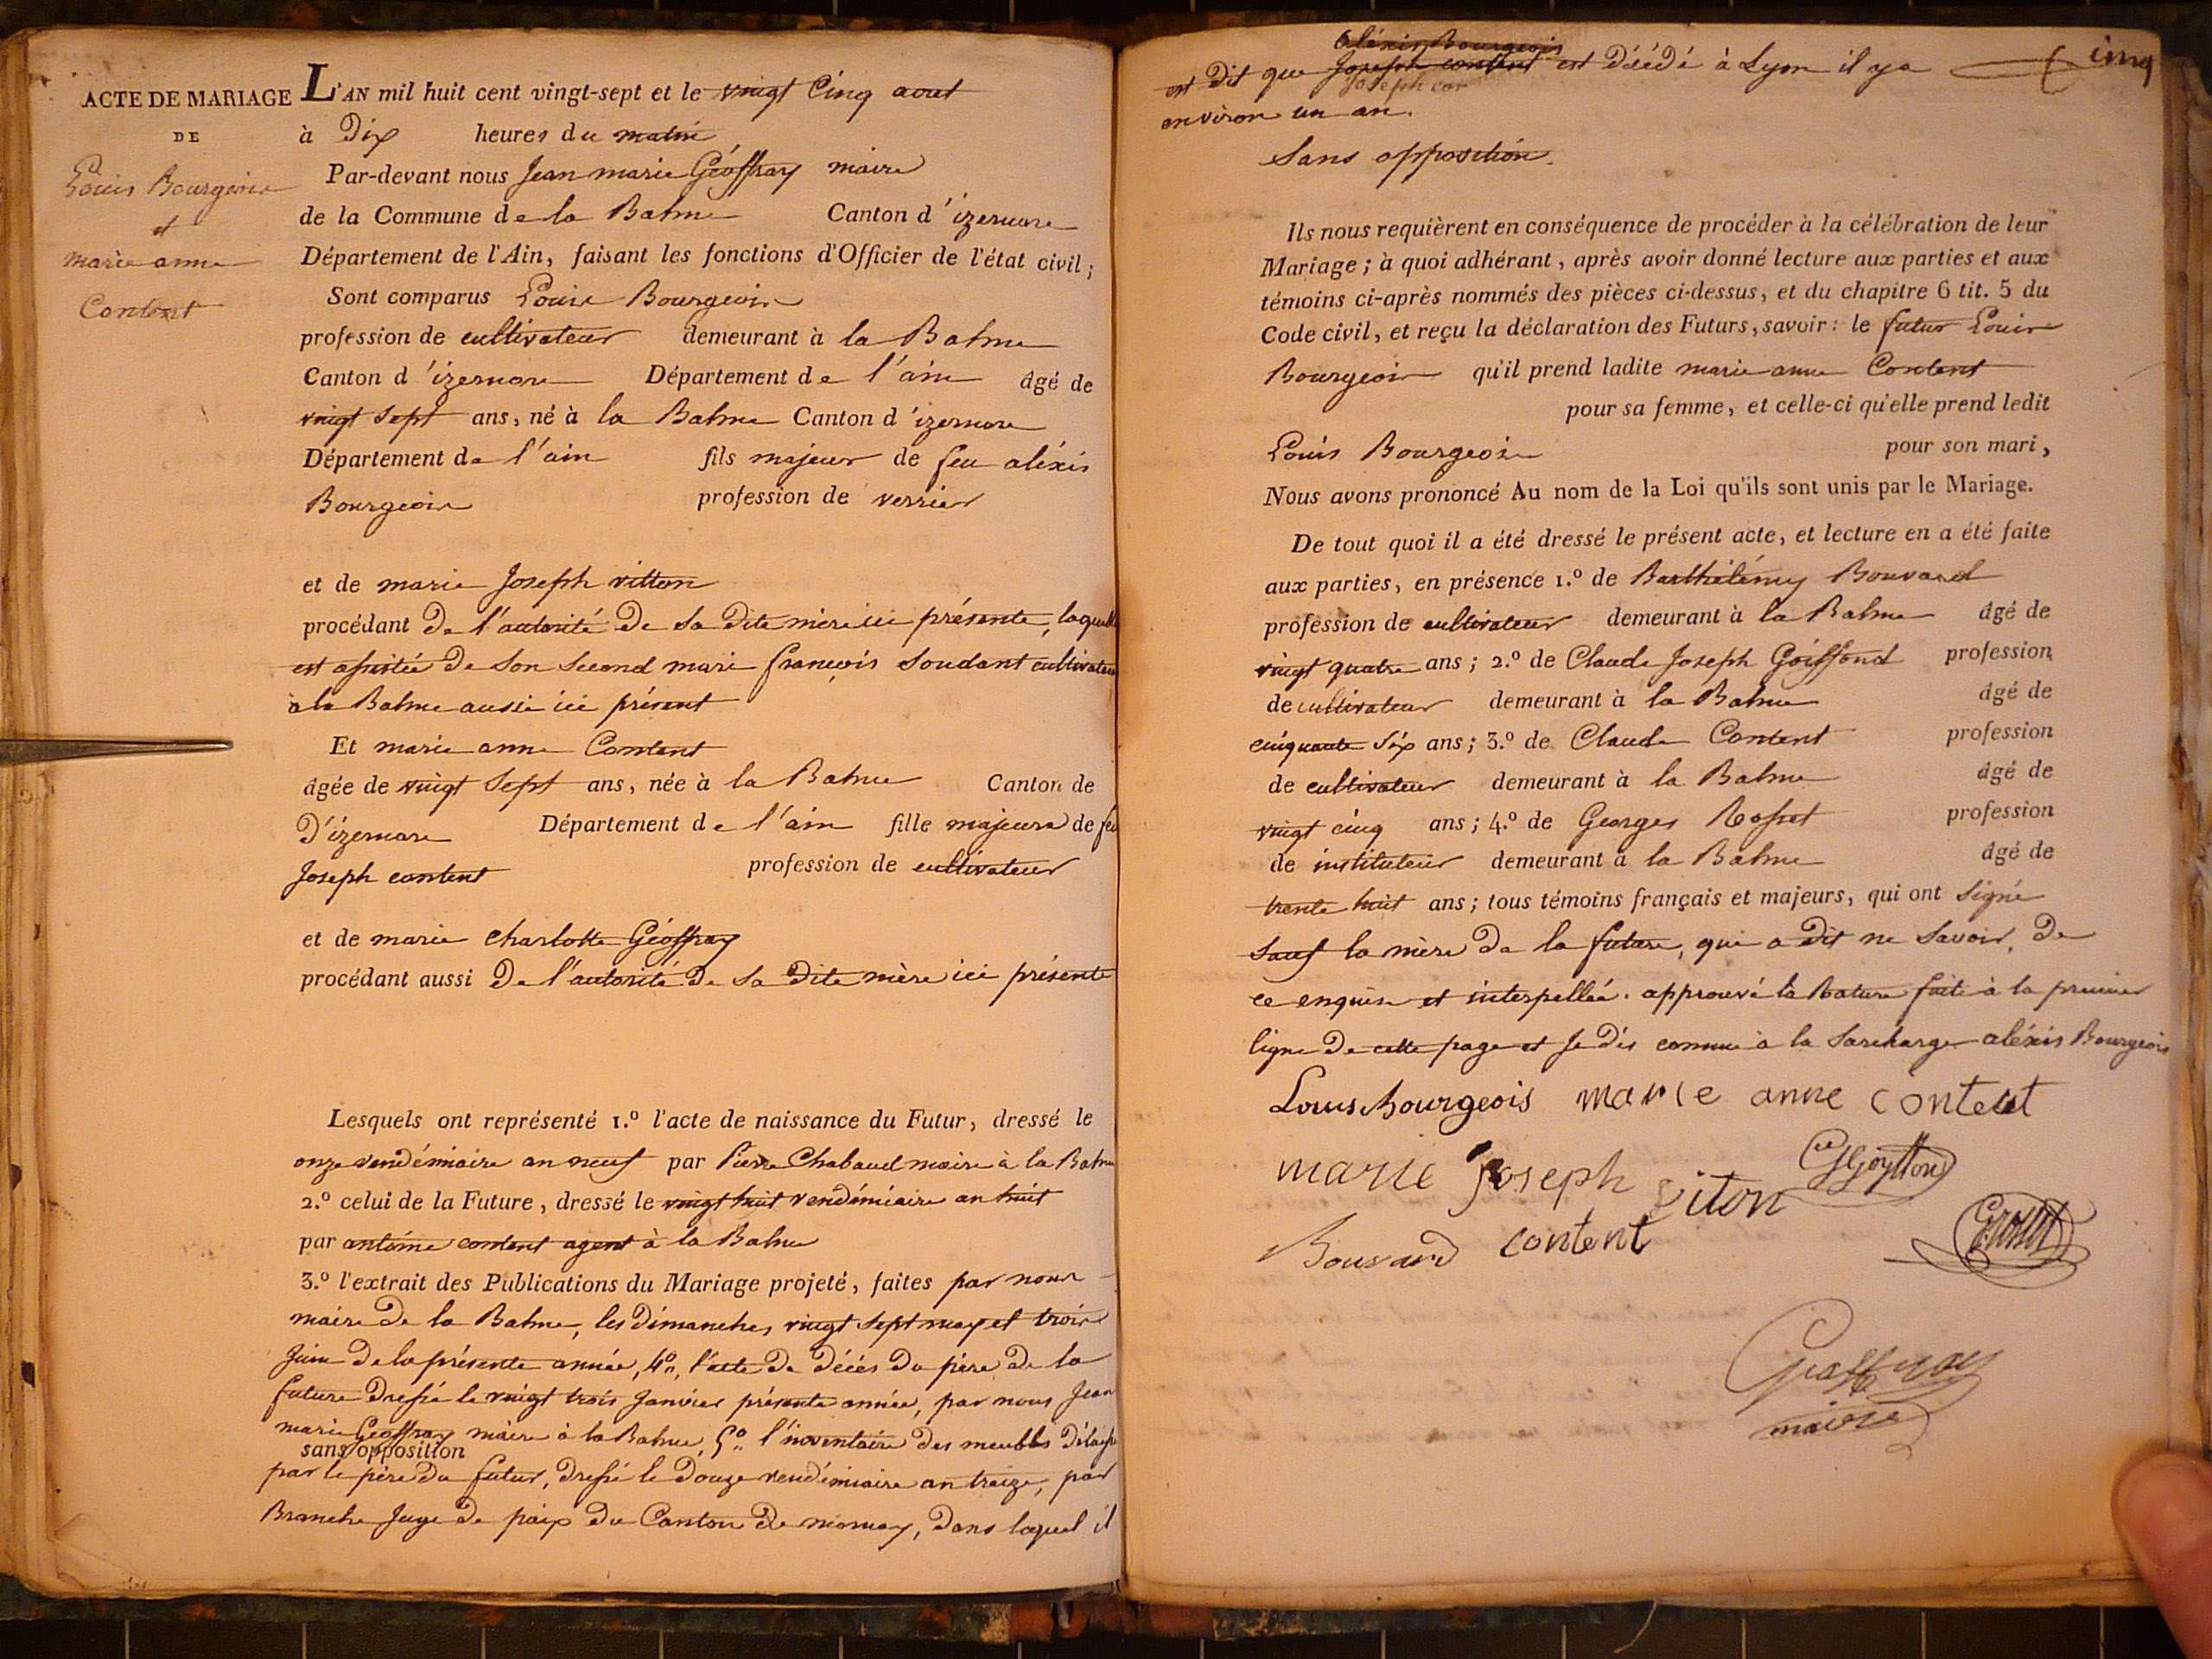 ACTE DE MARIAGE
DE
Louis Bourgeois
et
marie anne
Content
L'AN mil huit cent vingt-sept et le vingt Cinq aout
à Dix heures du matin
Par-devant nous Jean marie Géoffray maire
de la Commune de la Balme Canton d'izernore
Département de l'Ain, faisant les fonctions d'Officier de l'état civil;
Sont comparus Louis Bourgeois
profession de cultivateur demeurant à la Balme
Canton d'izernore Département de l'ain âgé de
vingt sept ans, né à la Balme Canton d'izernore
Département de l'ain fils majeur de feu aléxis
Bourgeois profession de verrier
et de marie Joseph vitton
procédant De l'autorité De sa Dite mère ici présente, laquelle
est assistée De son second mari françois soudant cultivateur
à la Balme aussi ici présent
Et marie anne Content
âgée de vingt Sept ans, née à la Balme Canton de
D'izernore Département de l'ain fille majeure de feu
Joseph content profession de cultivateur
et de marie charlotte Géoffray
procédant aussi De l'autorité De sa Dite mère ici présente
Lesquels ont représenté 1.º l'acte de naissance du Futur, dressé le
onze vendémiaire an neuf par Pierre Chabaud maire à la Balme
2.º celui de la Future, dressé le vingt huit vendémiaire an huit
par antoine content agent à la Balme
3.º l'extrait des Publications du Mariage projeté, faites par nous
maire De la Balme, les Dimanches vingt sept may et trois
Juin De la présente année, 4º, l'acte De Décès Du père De la
future Dressé le vingt trois Janvier présente année, par nous Jean
marie Geoffray maire à la Balme, 5º l'inventaire Des meubles Délaissé
sans opposition
par le père Du futur, Dressé le Douze vendémiaire an treize, par
Branche Juge De paix Du Canton De mornay, Dans laquel il
Aléxis Bourgeois
est Dit que Joseph content est Décédé à Lyon il y a cinq
Joseph con
environ un an.
Sans opposition.
Ils nous requièrent en conséquence de procéder à la célébration de leur
Mariage; à quoi adhérant, après avoir donné lecture aux parties et aux
témoins ci-après nommés des pièces ci-dessus, et du chapitre 6 tit. 5 du
Code civil, et reçu la déclaration des Futurs, savoir: le futur Louis
Bourgeois qu'il prend ladite marie anne Content
pour sa femme, et celle-ci qu'elle prend ledit
Louis Bourgeois pour son mari,
Nous avons prononcé Au nom de la Loi qu'ils sont unis par le Mariage.
De tout quoi il a été dressé le présent acte, et lecture en a été faite
aux parties, en présence 1.º de Barthélémy Bouvard
profession de cultivateur demeurant à la Balme âgé de
vingt quatre ans; 2.º de Claude Joseph Goiffond profession
de cultivateur demeurant à la Balme âgé de
cinquante Six ans; 3.º de Claude Content profession
de cultivateur demeurant à la Balme âgé de
vingt cinq ans; 4.º de Georges Rosset profession
de instituteur demeurant à la Balme âgé de
trente huit ans; tous témoins français et majeurs, qui ont signé
sauf la mère De la future, qui a Dit ne savoir, De
ce enquise et interpellée. approuvé la Rature faite à la premier
ligne De cette page et Je Dis comme à la Surcharge aléxis Bourgeois
Louis Bourgeois marie anne content
marie joseph viton
Bouvard content
G. Rosset
Geoffray
maire